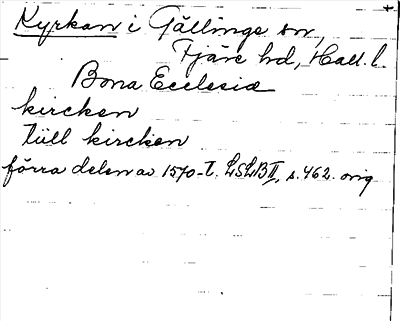 Kyrkan i Gällinge sn,
Fjäre hd, Hall. l.
Bona Ecclesia
kircken
tüll kircken
förra delen av 1570-t. LSLB II, s. 462. orig